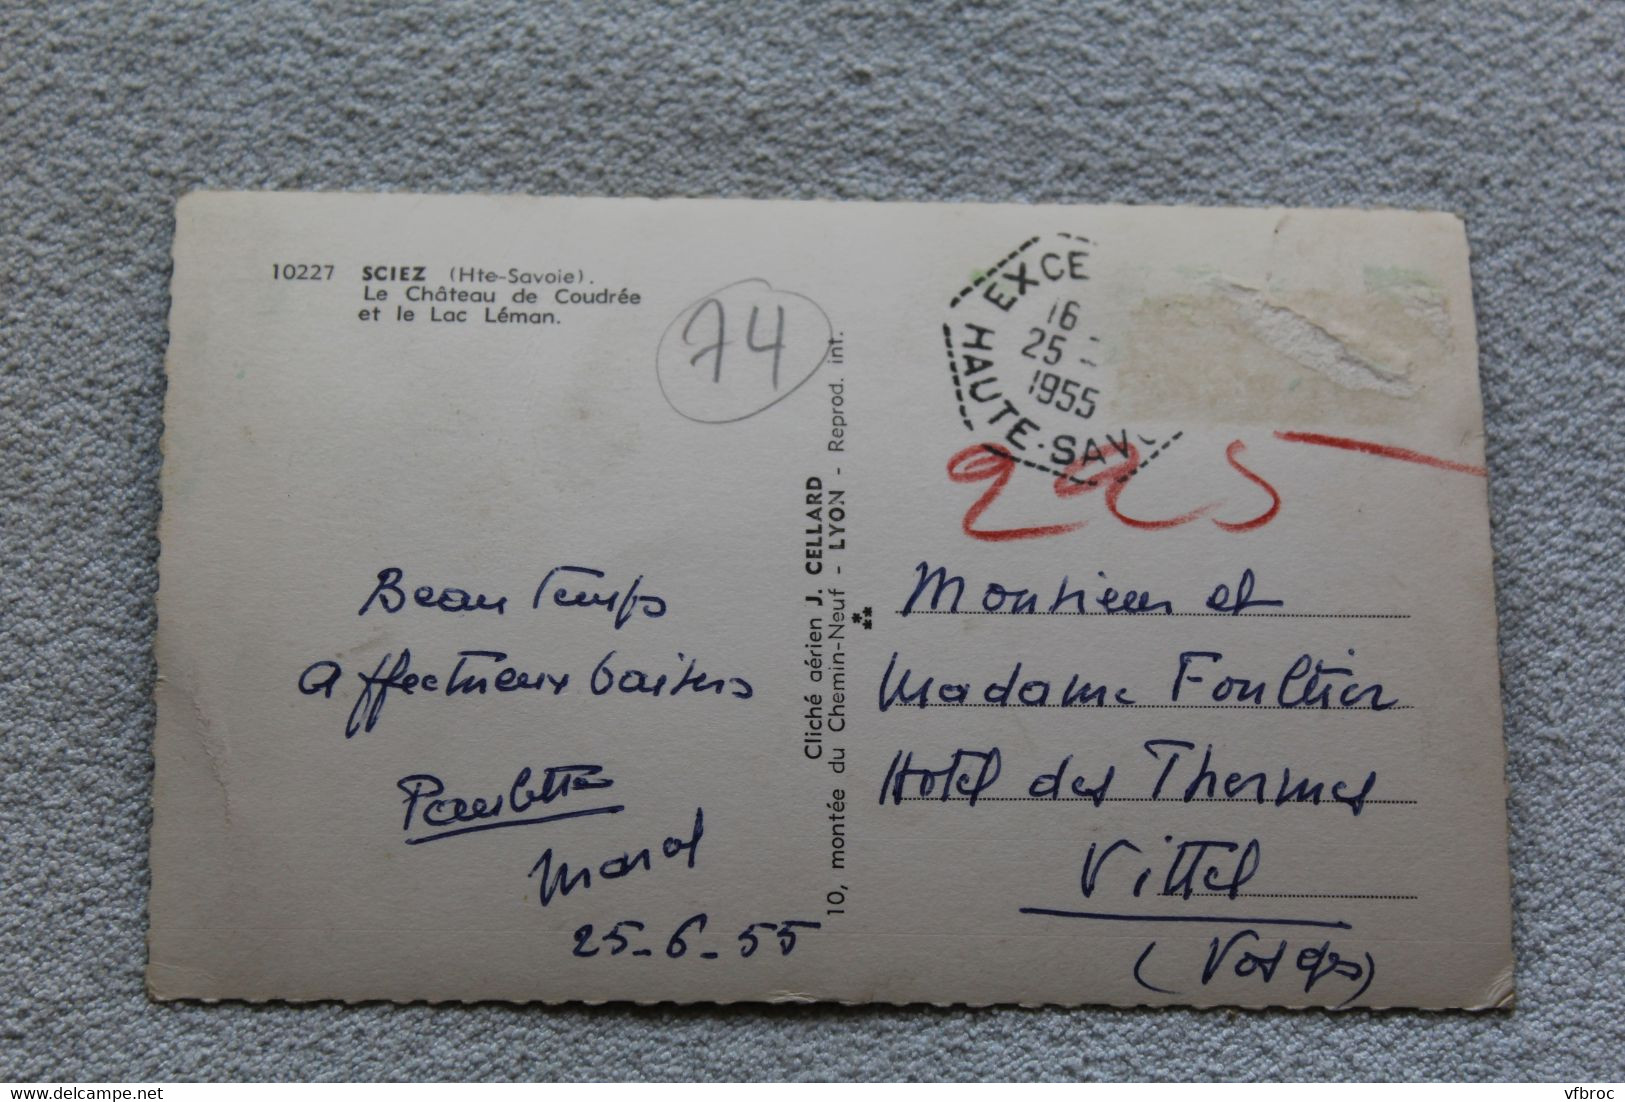 10227 SCIEZ (Hte-Savoie).
Le Château de Coudrée
et le Lac Léman.
74
EXCE
16
25
1955
HAUTE-SAV
225
Cliché aérien J. CELLARD
10, montée du Chemin-Neuf - LYON - Reprod. int.
Beau temps
affectueux baisers
Paulette
Marcel
25-6-55
Monsieur et
Madame
Hotel des Thermes
Vittel
(Vosges)
vfbroc
delcampe.net